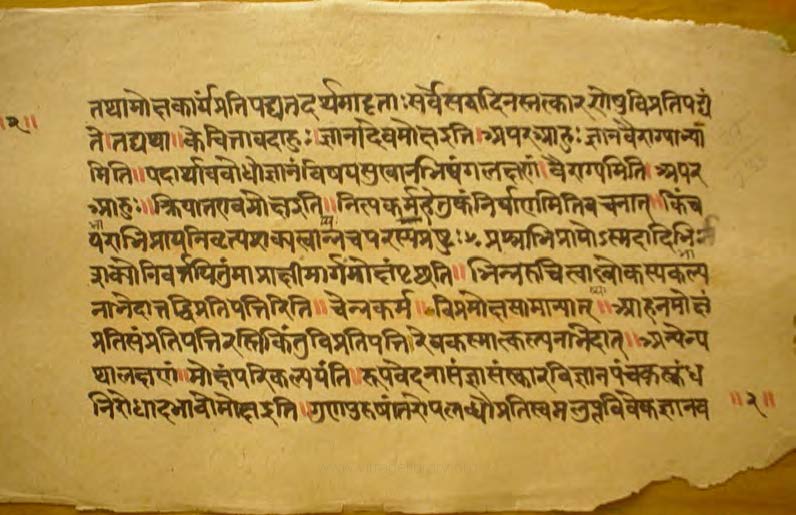 तथामोक्षकार्यंप्रतिपद्यतदर्थमादृताःसर्वेसद्वादिनस्तत्कारणेषुविप्रतिपद्यं
ते।तद्यथा॥केचित्तावदाहुः॥ज्ञानादेवमोक्षइति॥अपरआहुः॥ज्ञानवैराग्याभ्या
मिति॥पदार्थावबोधोज्ञानंविषयसुखानभिषंगलक्षणं॥वैराग्यमिति॥अपर
आहुः॥क्रियातएवमोक्षइति॥नित्यकर्महेतुकंनिर्वाणमितिवचनात्॥किंच
पराभिप्रायनिवृत्यशक्यत्वान्नच
शक्योनिवर्त्तयितुंमाप्राक्षीर्मार्गंमोक्षंपृछति॥भिन्नरुचित्वाल्लोकस्यकल्प
नाभेदात्तद्विप्रतिपत्तिरिति॥चेन्नकर्म॥विप्रमोक्षसामान्यात्॥आहनमोक्षं
प्रतिसंप्रतिपत्तिरस्तिकिंतुविप्रतिपत्तिरेवकस्मात्कल्पनाभेदात्॥अन्येन्य
थालक्षणं॥मोक्षंपरिकल्पयंति॥रूपवेदनासंज्ञासंस्कारविज्ञानपंचकस्कंध
निरोधादभावोमोक्षइति॥गुणपुरुषांतरोपलब्धौप्रतिस्वप्नलुप्तविवेकज्ञानव
॥२॥